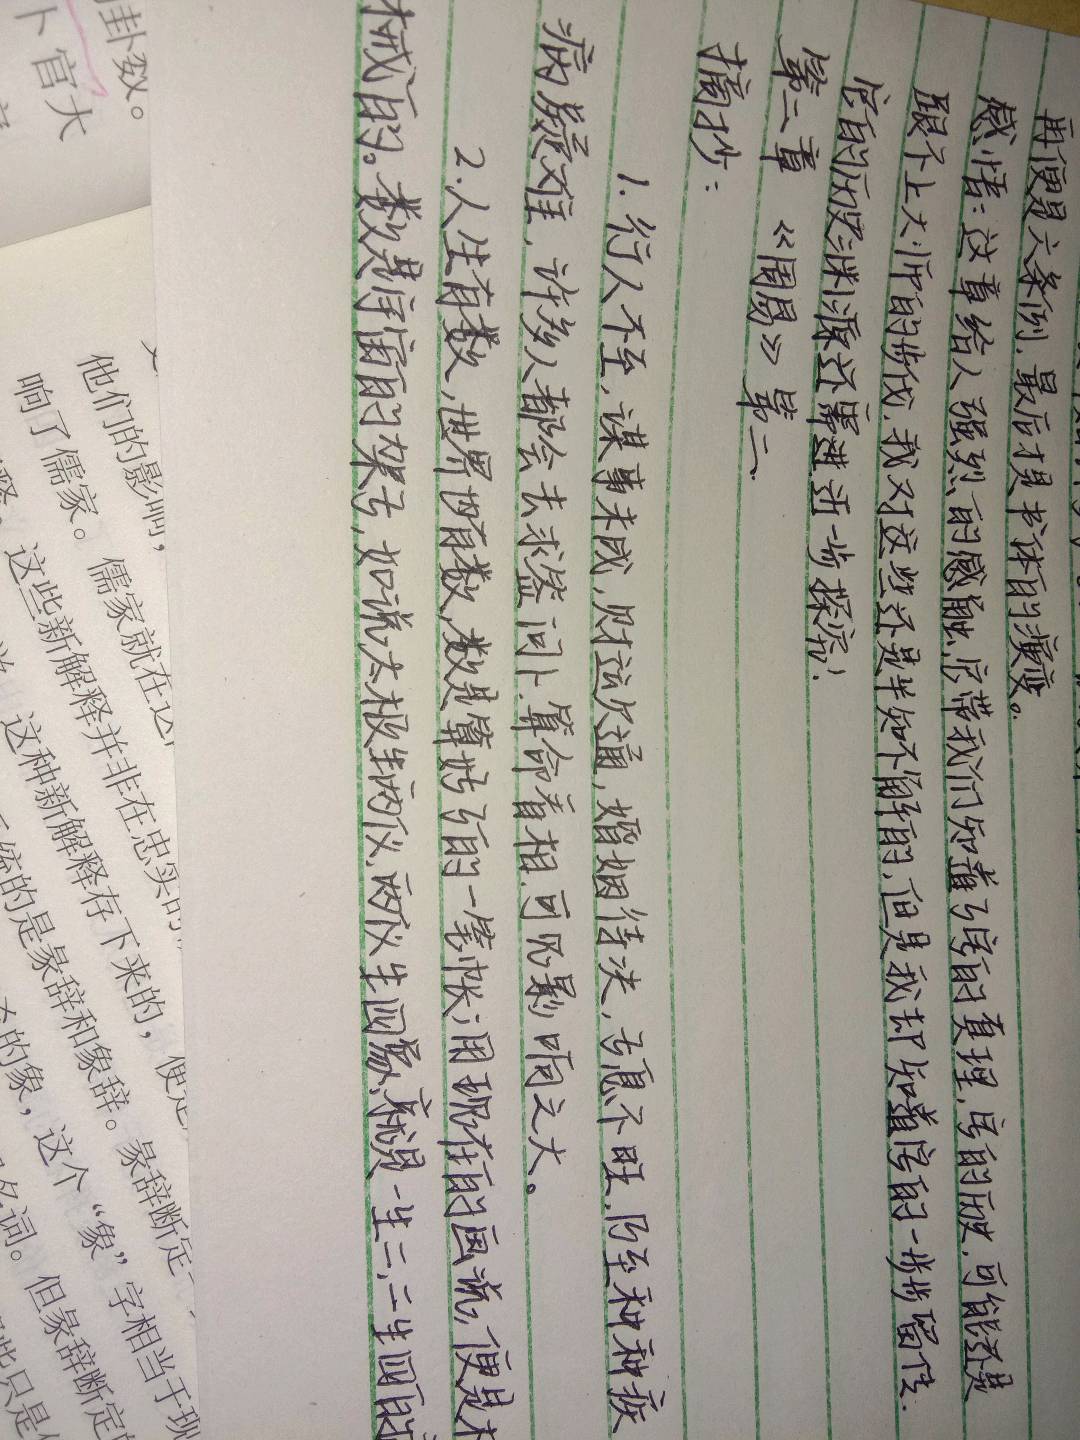 再便是六条例，最后才是书体的演变。
感悟：这章给人强烈的感触，它带我们知道了字的真理，字的历史，可能还是
跟不上大师的步伐，我对这些还是半知不解的，但是我却知道字的一步步留传
它的历史渊源还需进一步探究！
第二章 《周易》第二
摘抄：
1.行人不至，谋事未成，财运欠通，婚姻待决，子息不旺，乃至种种疾
病疑难，许多人都会去求签问卜，算命看相，可见影响之大。
2.人生有数，世界皆有数，数是算好了的一笔帐；用现在的画说，便是机
械的。数是宇宙的架子，如说太极生两仪，两仪生四象，就是一生二，二生四的
卦数。
卜官大
他们的影响，
响了儒家。儒家就在这
这些新解释并非在忠实的
这种新解释存下来的，便是
统的是彖辞和象辞。彖辞断定
的象，这个“象”字相当于现
名词。但彖辞断定
些只是